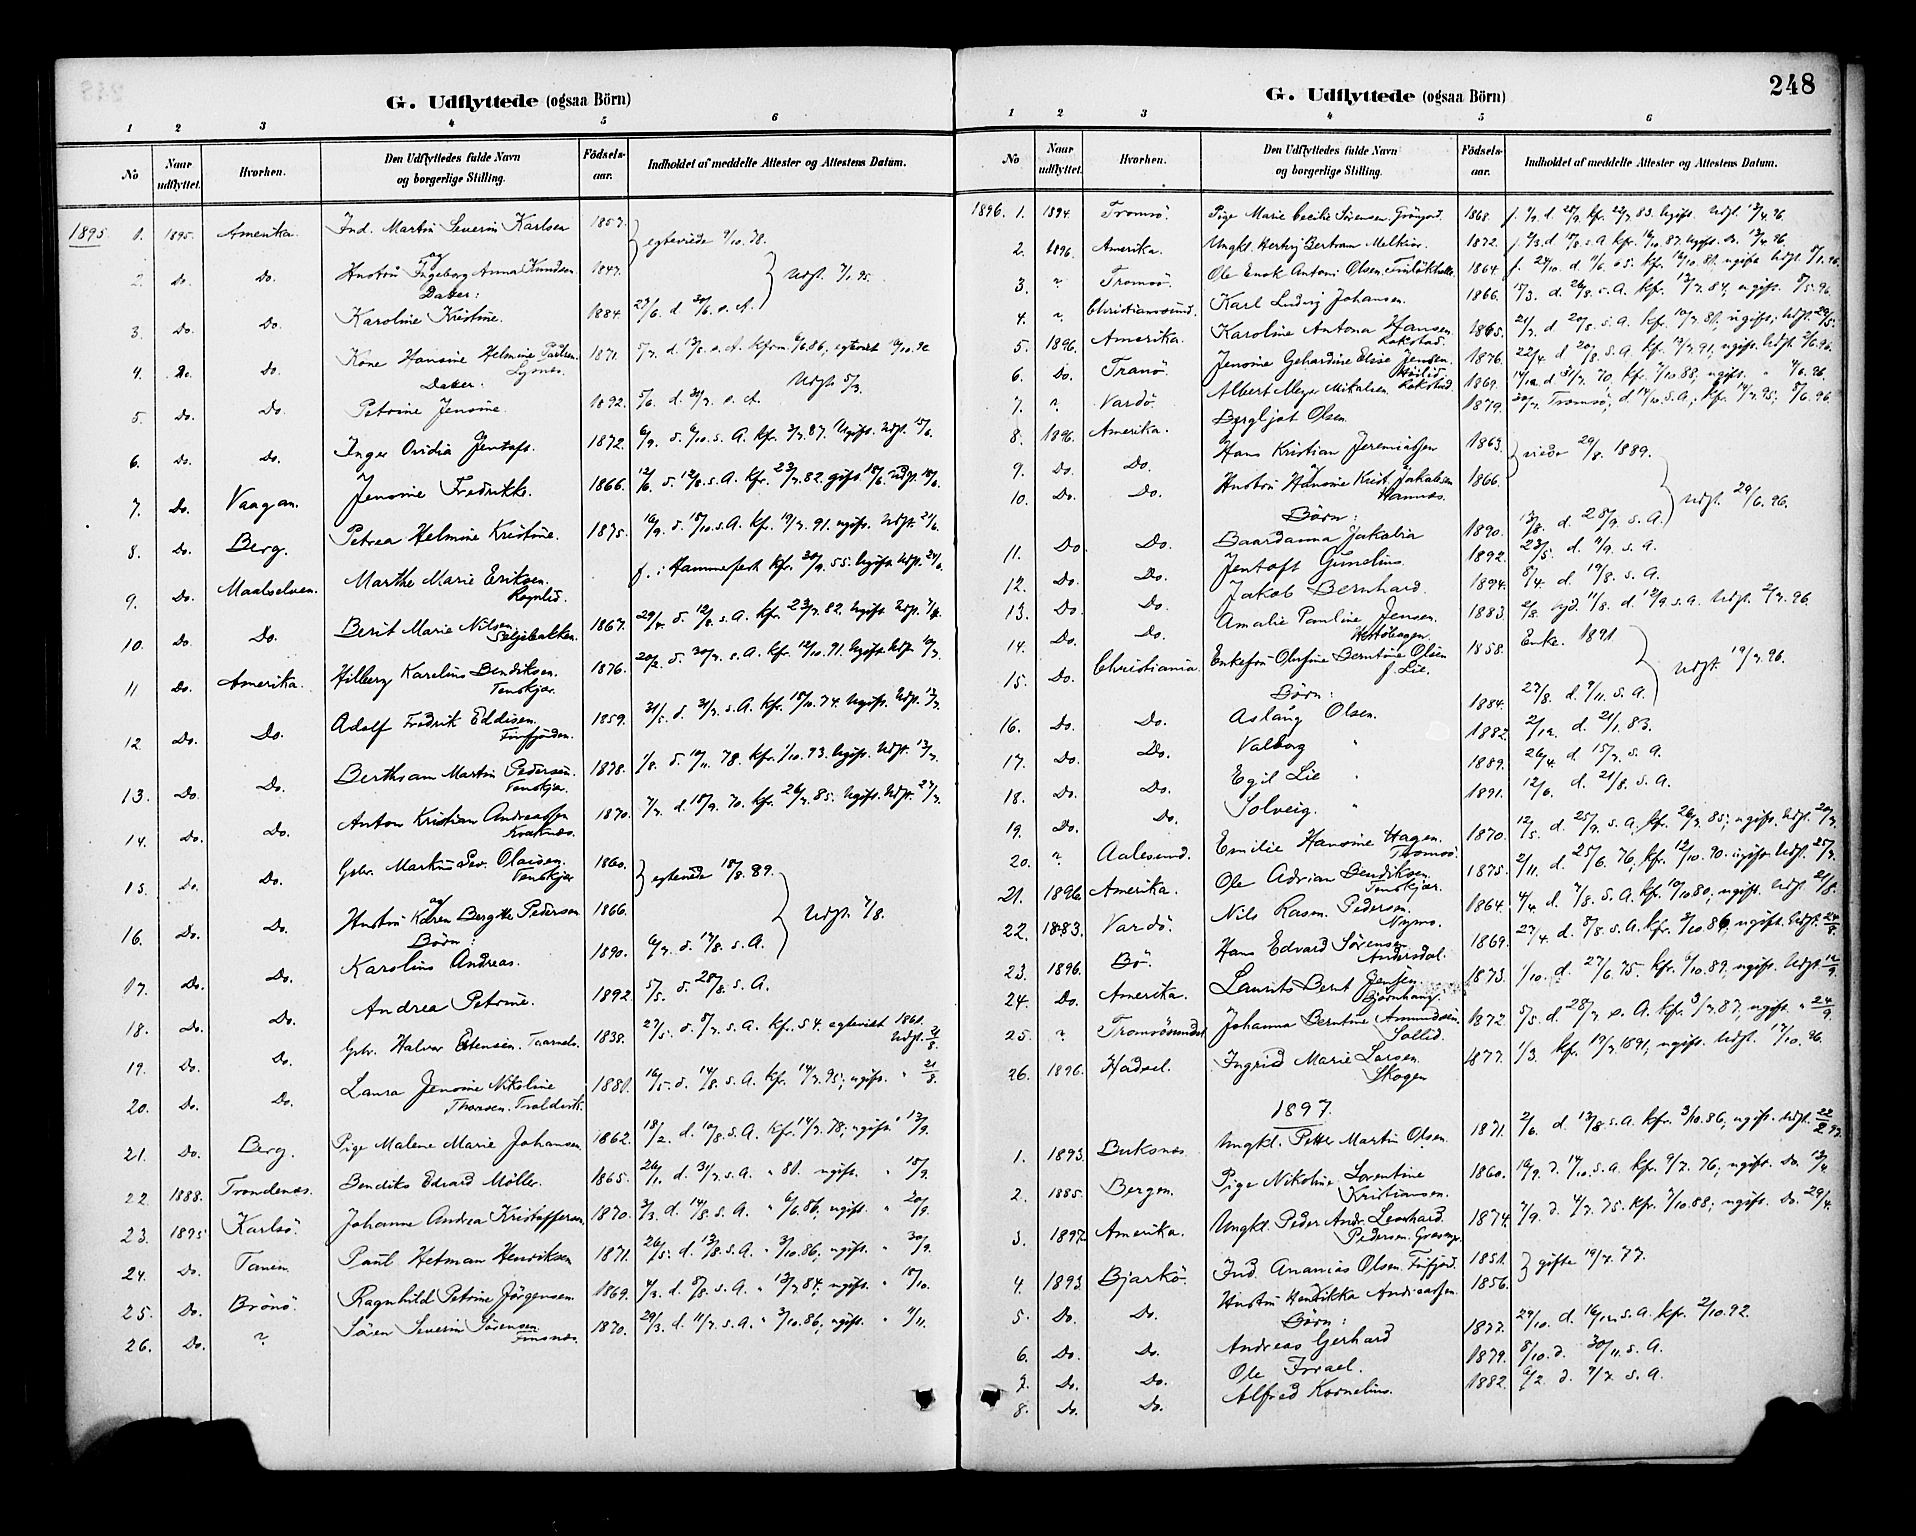 G. Udflyttede (ogsaa Börn)
1 2 3 4 5 6
No Naar udflyttet. Hvorhen. Den Udflyttedes fulde Navn og borgerlige Stilling. Födsels-aar. Indholdet af meddelte Attester og Attestens Datum.
1895. 1. 1895. Amerika. Ind. Martin Severin Karlsen 1857. egteviede 9/10.78.
og
2. Do. Do. Hustru Ingeborg Anna Knudsen 1847. Udfl. 7/1.95.
Datter:
3. Do. Do. Karoline Kristine. 1884 27/6. d. 30/6. s. A.
4. Do. Do. Kone Hansine Helmine Paulsen 1871. 5/7. d. 13/8. s. A.
Lysnes.
Datter. Udfl. 5/3.
5. Do. Do. Petrine Jensine. 1892. 5/6. d. 31/7. s. A.
6. Do. Do. Inger Ovidia Jentoft. 1872. 6/9. d. 6/10. s. A. kfr. 3/7.87. Ugift. Udfl. 15/6.
7. Do. Vaagan. Jensine Fredrikke. 1866. 12/6. d. 12/8. s. A. kfr. 23/7.82. gift 18/6. Udfl. 18/6.
8. Do. Berg. Petrea Helmine Kristine. 1875. 16/9. d. 18/10. s. A. kfr. 19/7. 91. ugift. Udfl. 21/6.
9. Do. Maalselven. Marthe Marie Eriksen. f. i Hammerfest kfr. 30/9. 55. Ugift. Udfl. 24/6.
Rognlid.
10. Do. Do. Berit Marie Nilsen 1867. 29/4. d. 12/8. s. A. kfr. 23/7. 82. Ugift. Udfl.
Seljebakken.
11 Do. Amerika. Hilberg Karelius Bendiksen. 1876. 20/2. d. 30/7. s. A. kfr. 12/10. 91. Ugift. Udfl.
Tenskjær.
12 Do. Do. Adolf Fredrik Eddisen. 1859. 31/5. d. 31/7. s. A. kfr. 18/10. 74. Ugift. Udfl. 13/7.
Finfjorden.
13. Do. Do. Berthsam Martin Pedersen. 1878. 1/8. d. 10/11. 78. kfr. 1/10. 93. Ugift. Udfl. 13/7.
Tenskjær.
14. Do. Do. Anton Kristian Andreassen 1870. 7/7. d. 18/9. 70. kfr. 26/7. 85. Ugift. Udfl. 27/7.
Kvaknæs.
15. Do. Do. Gbr. Martin Sev. Olaisen. 1860. egteviede 18/8. 89.
Tenskjær
og
16. Do. Do. Hustru Karen Bergitte Pedersen 1866. Udfl. 7/8.
Börn:
17. Do. Do. Karolius Andreas. 1890. 6/7. d. 17/8. s. A.
18. Do. Do. Andrea Petrine. 1892 5/5. d. 28/8. s. A.
19. Do. Do. Gbr. Halvor Estensen. 1838. 27/5. d. 8/7. s. A. kfr. 54. egteviet 1861.
Udfl. 21/8.
20. Do. Do. Laura Jensine Nikoline 1881. 16/5. d. 14/8. s. A. kfr. 14/7. 95; ugift. " 21/8.
Thomsen. Troldvik.
21. Do. Berg. Pige Malene Marie Johansen 1862. 18/2. d. 10/8. s. A. kfr. 14/7. 78; ugift. " 13/9.
22. 1888. Trondenæs. Bendiks Edvard Möller. 1865. 26/1. d. 31/7. s. A. " 81. ugift. " 18/9.
23. 1895 Karlsö. Johanne Andrea Kristoffersen 1870. 3/3. d. 14/8. s. A. " 6/6.86, ugift. " 20/9.
24. Do. Tanen. Paul Hetman Henriksen 1871. 26/5. d. 13/8. s. A. " 3/10.86, ugift. " 30/9.
25. Do. Brönö. Ragnhild Petrine Jörgensen 1869. 4/3. d. 8/8. s. A. " 13/7. 84, ugift. " 18/10.
26. Do. ? Sören Severin Sörensen 1870. 29/3. d. 11/7. s. A. " 3/10.86, ugift. " 11/11.
Finsnæs.
248
G. Udflyttede (ogsaa Börn)
1 2 3 4 5 6
No Naar udflyttet. Hvorhen. Den Udflyttedes fulde Navn og borgerlige Stilling. Födsels-aar. Indholdet af meddelte Attester og Attestens Datum.
1896. 1. 1894. Tromsö. Pige Marie Cecilie Sörensen. 1868. f. 9/7. d. 28/9. kfr. 22/7. 83. Ugift. Udfl. 13/4. 96.
2. 1896. Amerika. Ungkl. Bertram Melkior. 1872. s. A. kfr. 16/10. 87. Ugift. Do. 13/4. 96.
3. ? Tromsö. Ole Enok Antoni Olsen. 1864. f. 24/10. d. 11/6. 65. kfr. 16/10. 81. ugift Udfl. 5/1.96.
4. ? Christianssund. Karl Ludvig Johansen. 1866. 15/3. d. 26/8. s. A. kfr. 13/7. 84, ugift. 8/5. 96.
5. 1896. Amerika. Karoline Antona Hansen 1865. 21/7. d. 20/8. s. A. kfr. 10/7. 81. ugift; Udfl. 29/5.
Lokstad.
6. Do. Tranö. Jensine Gehardine Elise Jensen. 1876. 22/4. d. 20/8. s. A. kfr. 19/7. 91, ugift. Udfl. 2/6.96.
7. ? Vardö. Albert Meyer Mikalsen 1869. 14/12. d. 31/7. 70, kfr. 7/10. 88, ugift. " 4/6. 96.
Lokstad
8. 1896. Amerika. Bergljot Olsen. 1879. 20/7. Tromsö; d. 14/10. s. A.; kfr. 14/7. 95; 5/6. 96.
9. Do. Do. Hans Kristian Jeremiassen 1863. viede 29/8. 1889.
og
10. Do. Do. Hustru Hansine Krist. Jakobsen 1866. Udfl. 29/6. 96.
Börn:
11. Do. Do. Baardanna Jakobia 1890. 13/8. d. 28/9. s. A.
12. Do. Do. Jentoft Gunelius 1892. 23/5. d. 11/9. s. A.
13. Do. Do. Jakob Bernhard. 1894. 8/4. d. 19/8. s. A.
14. Do. Do. Amalie Pauline Jensen. 1883. 2/8. hjd. 11/8. d. 12/9 s. A. Udfl. 2/7. 96.
15. Do. Christiania. Enkefru Olufine Berntine Olsen 1858. Enke. 1891.
f. Lie. Udfl. 19/7. 96.
Börn:
16. Do. Do. Aslaug Olsen. 1884. 27/8. d. 9/11. s. A.
17. Do. Do. Valborg " 1882. 2/12. d. 21/1. 83.
18. Do. Do. Egil Lie " 1889. 26/4. d. 15/7. s. A.
19. Do. Do. Solveig. " 1891. 12/6. d. 21/8. s. A.
20. ? Aalesund. Emilie Hansine Hagen. 1870. 12/5. d. 25/9. s. A. kfr. 26/7. 85; ugift. Udfl. 20/7.
Tromsö.
21. 1896. Amerika. Ole Adrian Bendiksen. 1875. 2/11. d. 25/6. 76; kfr. 12/10. 90. ugift. Udfl. 25/7.
Tenskjær.
22. 1883. Vardö. Nils Rasm. Pedersen. 1864. 4/4. d. 7/8. s. A. kfr. 10/10 80; ugift. Udfl. 21/8.
Nymo.
23. 1896. Bö. Hans Edvard Sörensen 1869. 27/4. d. 8/8. s. A. kfr. 3/10. 86, ugift. Udfl. 24/9.
Andersdal.
24. Do. Amerika. Laurits Bernt Jensen 1873. 1/10. d. 27/6. 75. kfr. 6/10. 89, ugift. Udfl. 12/9.
Björnhaug.
25. ? Tromsösundet Johanna Berntine Amundsen. 1872. 5/5. d. 28/7 s. A. kfr. 3/7. 87, ugift. " 24/9.
Sollid.
26. 1896. Hadsel. Ingrid Marie Larsen. 1877. 1/3. kfr. 19/7. 1891; ugift. Udfl. 17/10. 96.
Skogen
1897.
1. 1893. Buksnæs. Ungkl. Petter Martin Olsen. 1871. 2/6. d. 13/8. s. A. kfr. 3/10. 86, ugift. Udfl. 22/2.97.
2. 1885. Bergen. Pige Nikoline Lorentine 1860. 16/9. d. 14/10. s. A. kfr. 9/7. 76; ugift. Do. 13/4.
Kristiansen.
3. 1897. Amerika. Ungkl. Peder Andr. Leonhard 1874. 7/9. d. 4/7. 75. kfr. 7/10. 88; ugift. Do. 29/4.
Pedersen.
4. 1893. Bjarkö. Ind. Ananias Olsen. Finfjord. 1851. gifte 19/7. 77.
5. Do. Do. Hustru Hendrikka Andreassen 1856.
Börn:
6. Do. Do. Andreas Gerhard 1877. 29/10. d. 16/12. s. A. kfr. 2/10. 92.
7. Do. Do. Ole Israel. 1879. 8/10. d. 30/11. s. A.
8. Do. Do. Alfred Kornelius. 1882. 6/2. d. 9/7. s. A.